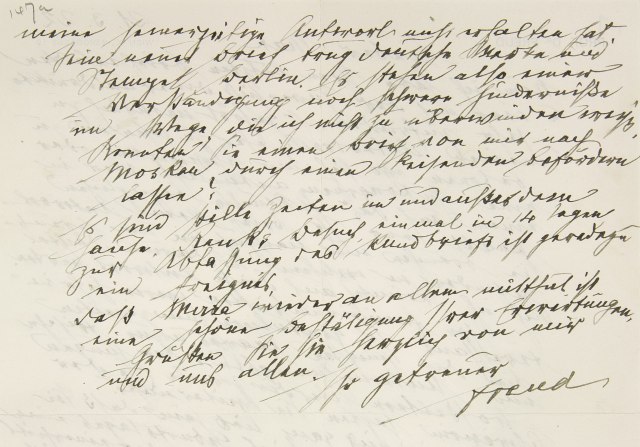 147a
meine seinerzeitige Antwort nicht erhalten hat.
Sein neuer Brief trug deutsche Marke und
Stempel Berlin. Es stehen also einer
Verständigung noch schwere Hinderniße
im Wege, die ich nicht zu überwinden weiß.
Könnten Sie einen Brief von mir nach
Moskau durch einen Reisenden befördern
lassen?
Es sind stille Zeiten im und außer dem
Hause. Ranks Besuch einmal in 14 Tagen
zur Abfassung des Rundbriefs ist geradezu
ein Ereignis.
Daß Mirra wieder an allem mitthut ist
eine schöne Bestätigung Ihrer Erwartungen.
Grüßen Sie sie herzlich von mir
und uns allen.
Ihr getreuer
Freud